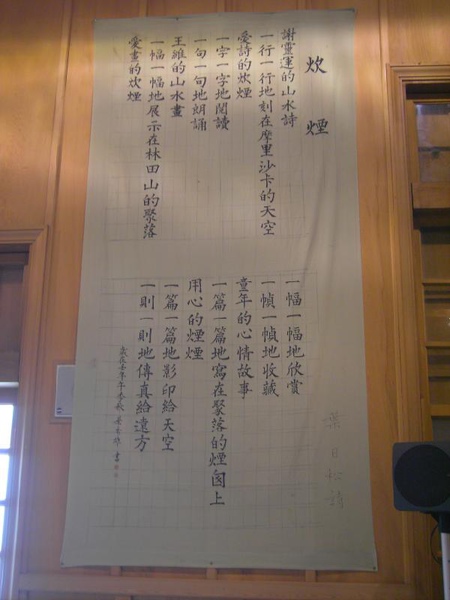 炊煙
謝靈運的山水詩
一行一行地刻在摩里沙卡的天空
愛詩的炊煙
一字一字地閱讀
一句一句地朗誦
王維的山水畫
一幅一幅地展示在林田山的聚落
愛畫的炊煙
一幅一幅地欣賞
一幀一幀地收藏
童年的心情故事
一篇一篇地寫在聚落的煙囪上
用心的煙煙
一篇一篇地影印給天空
一則一則地傳真給遠方
葉日松詩